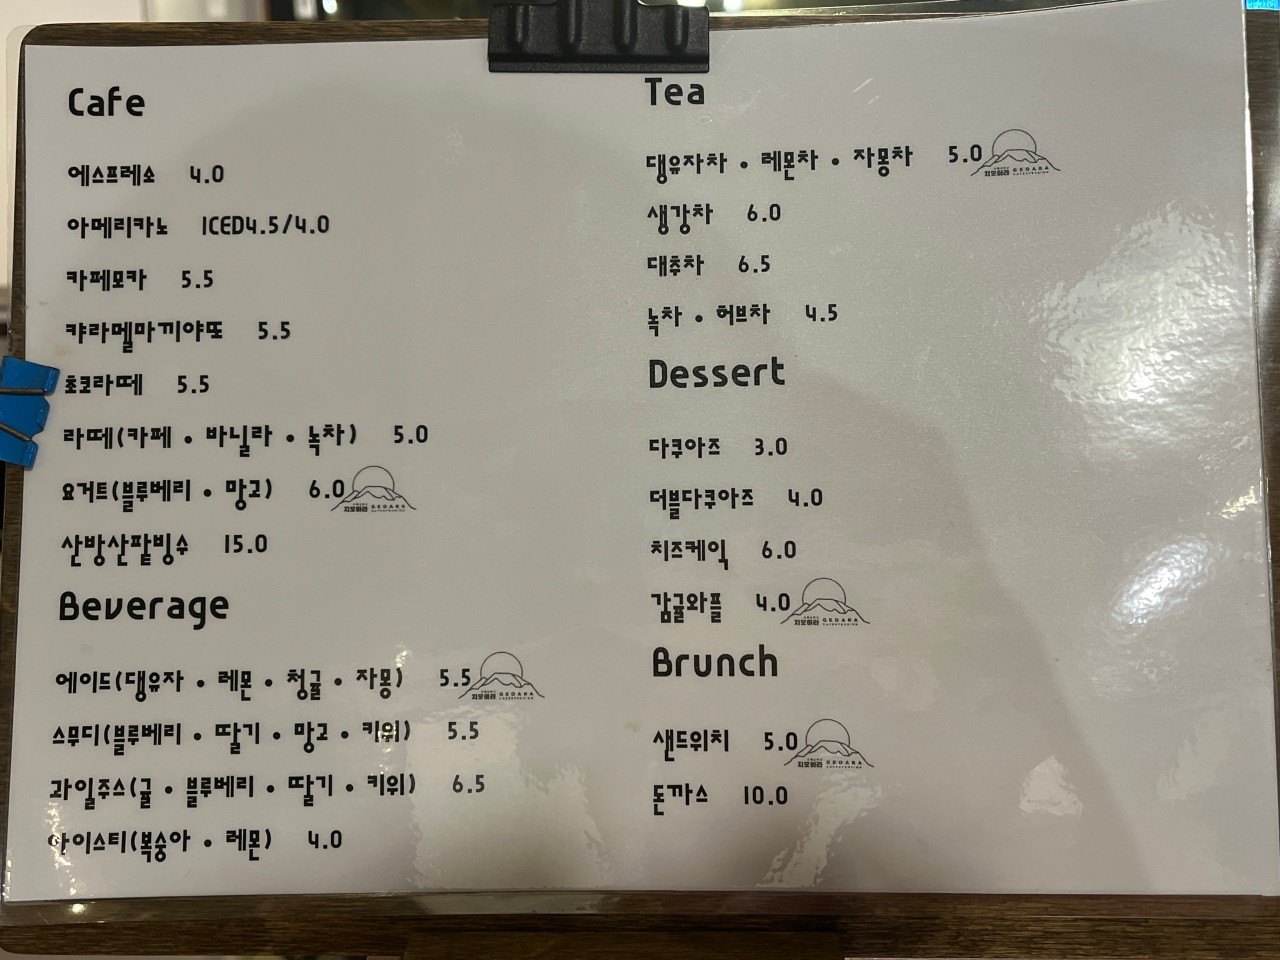 Cafe
에스프레소 4.0
아메리카노 ICED4.5/4.0
카페모카 5.5
캬라멜마끼야또 5.5
초코라떼 5.5
라떼(카페 • 바닐라 • 녹차) 5.0
요거트(블루베리 • 망고) 6.0
지오아라 GEOARA
산방산팥빙수 15.0
Beverage
에이드(댕유자 • 레몬 • 청귤 • 자몽) 5.5
지오아라 GEOARA
스무디(블루베리 • 딸기 • 망고 • 키위) 5.5
과일주스(귤 • 블루베리 • 딸기 • 키위) 6.5
아이스티(복숭아 • 레몬) 4.0
Tea
댕유자차 • 레몬차 • 자몽차 5.0
지오아라 GEOARA
생강차 6.0
대추차 6.5
녹차 • 허브차 4.5
Dessert
다쿠아즈 3.0
더블다쿠아즈 4.0
치즈케익 6.0
감귤와플 4.0
지오아라 GEOARA
Brunch
샌드위치 5.0
지오아라 GEOARA
돈까스 10.0